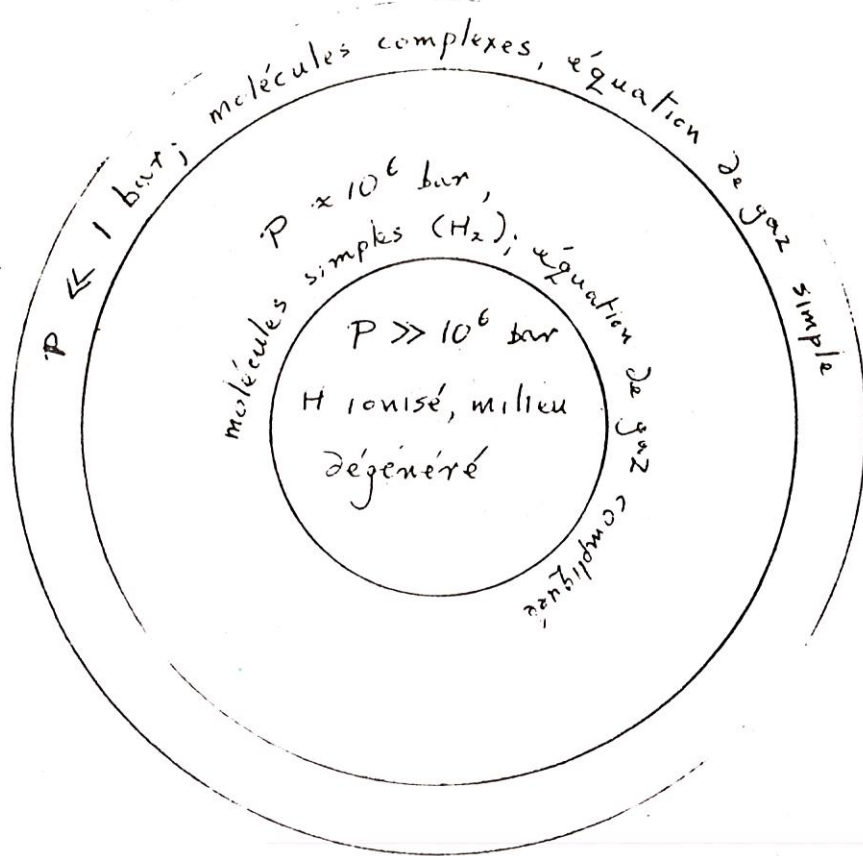 P ≪ 1 bar; molécules complexes, équation de gaz simple
P ≈ 10⁶ bar,
molécules simples (H₂); équation de gaz compliquée
P ≫ 10⁶ bar
H ionisé, milieu
dégénéré